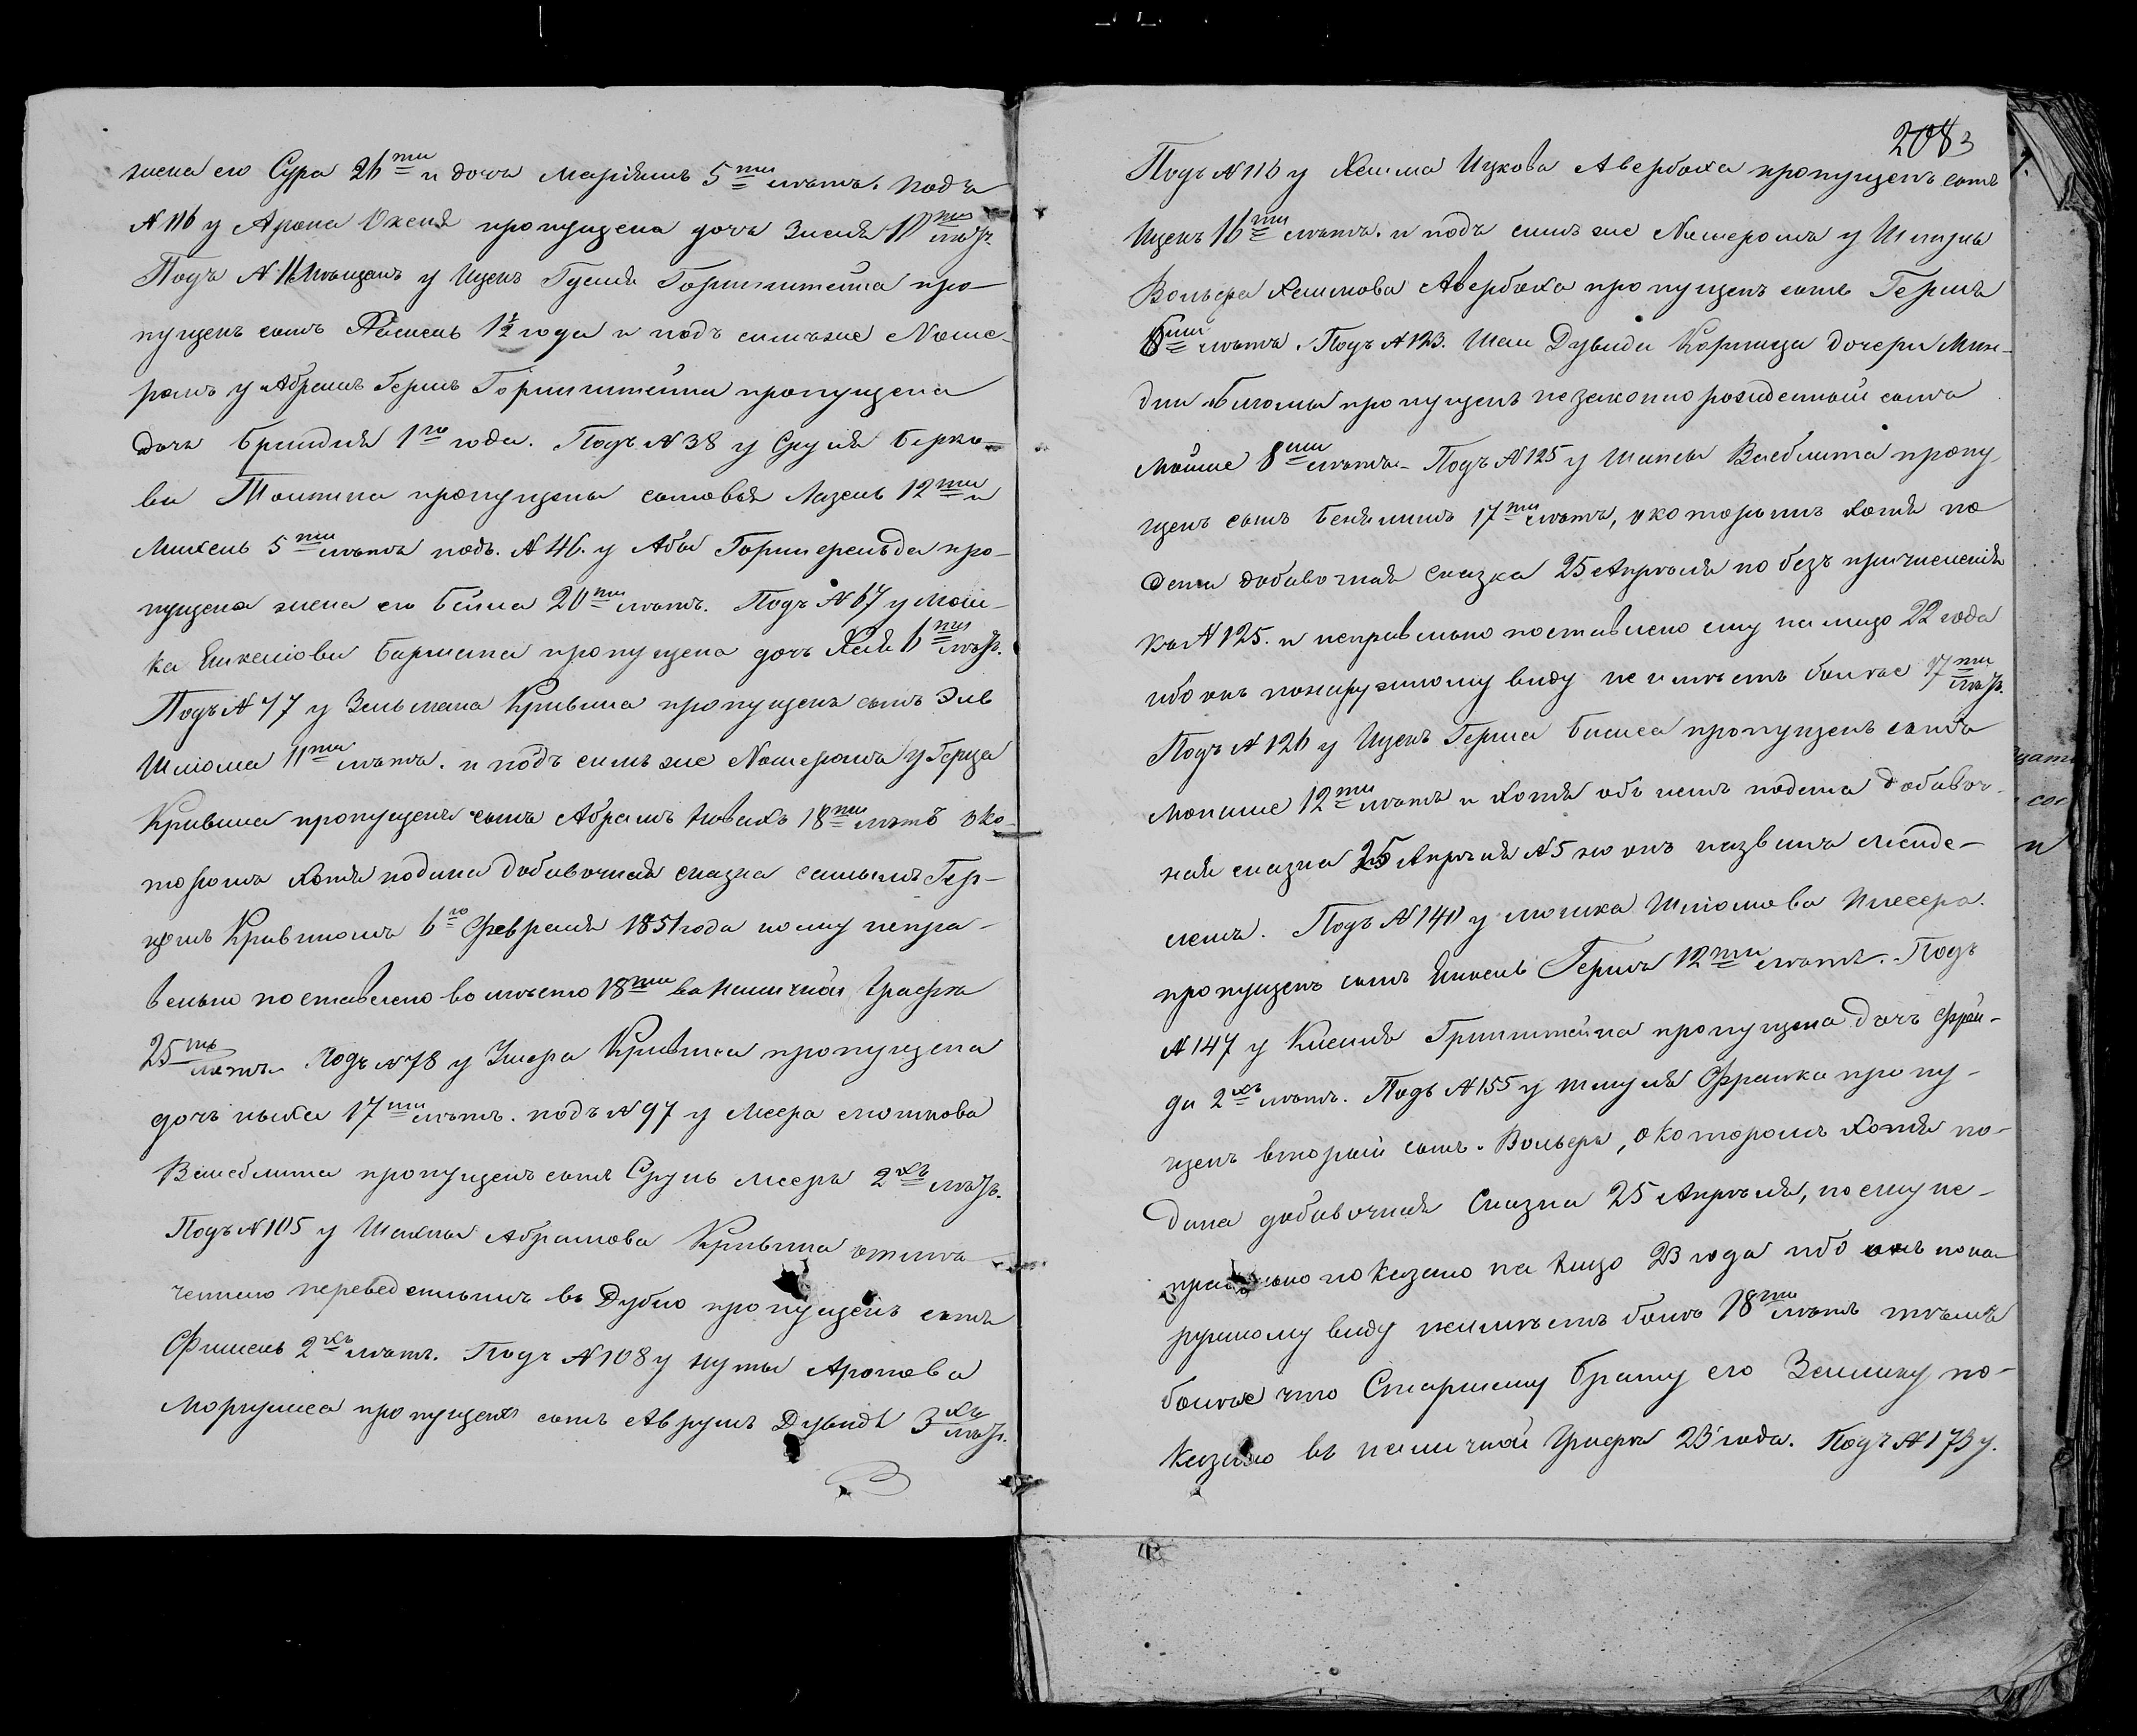 жена его Сура 26ти и дочь Марьямъ 5ти лѣтъ. Подъ
N 116 у Арона пропущена дочь Зисля лѣтъ.
Подъ N у Ицекъ Горинштейна про-
пущенъ сынъ 1½ года и подъ симъ же Номе-
ромъ у Абрамъ Гершъ Горинштейна пропущена
дочь Бриндля 1го года. Подъ N 38 у Сруля Берко-
ва пропущены сыновья Лазель 12ти и
Михель 5ти лѣтъ подъ. N 46. у Абы про-
пущена жена его Бейла 20ти лѣтъ. Подъ N 67 у Мош-
ка пропущена дочь Хая 6ти лѣтъ.
Подъ N 77 у Зельмана Кривина пропущенъ сынъ Эле
Шлiома 11ти лѣтъ. и подъ симъ же Номеромъ у Герца
Кривина пропущенъ сынъ Абрамъ 18ти лѣтъ о ко-
торомъ хотя подана добавочная сказка самымъ Гер-
цомъ Кривиномъ 6го Февраля 1851 года но ему непра-
вельно поставлено вомѣсто 18ти въ Наличной Графѣ
25ть лѣтъ. Подъ N 78 у Кривина пропущена
дочь 17ти лѣтъ. подъ N 97 у Меера Мошкова
Вейсблита пропущенъ сынъ Сруль Мееръ 2хъ лѣтъ.
Подъ N 105 у Шахны Абрамова Кривина отмѣ-
ченнымъ переведеннымъ въ Дубно пропущенъ сынъ
Фишель 2хъ лѣтъ. Подъ N 108 у Нуты Аронова
Моргулиса пропущенъ сынъ Аврумъ Дувидъ 3хъ лѣтъ.
2083
Подъ N 116 у Хаима Ицкова Авербоха пропущенъ сынъ
Ицекъ 16ти лѣтъ. и подъ симъ же Номеромъ у Шмуль
Вольфа Хаимова Авербоха пропущенъ сынъ Гершъ
8ми лѣтъ. Подъ N 123. Дувида дочери Мин-
дли Блюмы пропущенъ незаконно рожденный сынъ
Мойше 8ми лѣтъ. Подъ N 125 у Вейсблита пропу
щенъ сынъ Беняминъ 17ти лѣтъ, о которымъ хотя по
дана добавочная сказка 25 Апрѣля но безъ причисленiя
къ N 125. и неправельно поставлено ему на лицо 22 года
ибо онъ понаружному виду не имѣетъ болѣе 17ти лѣтъ.
Подъ N 126 у Ицекъ Герша пропущенъ сынъ
Мойше 12ти лѣтъ и хотя объ немъ подана добавоч-
ная сказка 25 Апрѣля N 5 но онъ названъ Менде-
лемъ. Подъ N 140 у Мошка Шлiомова
пропущенъ сынъ Янкель Гершъ 12ти лѣтъ. Подъ
N 147 у Киселя Гринштейна пропущена дочь Фрей-
да 2хъ лѣтъ. Подъ N 155 у Шмуля Франка пропу-
щенъ вторый сынъ. Вольфъ, о которомъ хотя по-
дана добавочная Сказка 25 Апрѣля, но ему не-
правельно показано на Лицо 23 года ибо онъ пона-
ружному виду неимѣетъ болѣ 18ти лѣтъ тѣмъ
болѣе что Старшему брату его Зелику по-
казано въ наличной Графѣ 23 года. Подъ N 173 у.